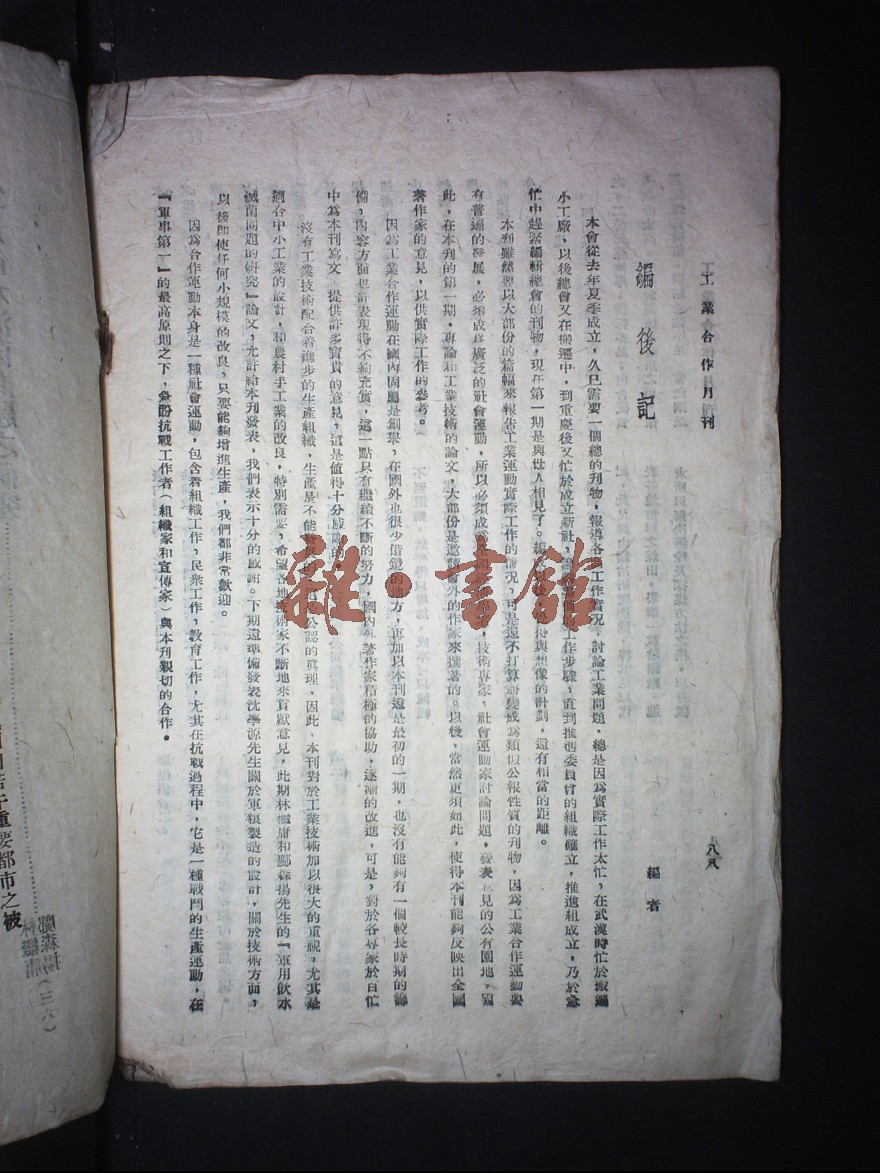 工業合作月刊
八八
編後記
編者
本會從去年夏季成立，久已需要一個總的刊物，報導各地工作實況，討論工業問題，總是因為實際工作太忙，在武漢時忙於搬遷
小工廠，以後總會又在搬遷中，到重慶後又忙於成立新社，工作步驟，直到推進委員會的組織確立，推進組成立，乃於急
忙中趕緊編輯總會的刊物，現在第一期是與世人相見了。與想像的計劃，還有相當的距離。
本刊雖然要以大部份的篇幅來報告工業運動實際工作的情況，可是還不打算會變成為類似公報性質的刊物，因為工業合作運動要
有普遍的發展，必須成為廣泛的社會運動，所以必須成為，技術專家，社會運動家討論問題，發表意見的公有園地，因
此，在本刊的第一期，專論和工業技術的論文，大部份是邀請會外的作家來撰著的。以後，當然更須如此，使得本刊能夠反映出全國
著作家的意見，以供實際工作的參考。
因為工業合作運動在國內固屬是創舉，在國外也很少借鏡的地方，再加以本刊還是最初的一期，也沒有能夠有一個較長時期的籌
備，內容方面也許表現得不夠充實，這一點只有繼續不斷的努力，國內外著作家積極的協助，逐漸的改進，可是，對於各專家於百忙
中為本刊寫文，提供許多寶貴的意見，這是值得十分感謝的。
沒有工業技術配合着進步的生產組織，生產是不能公認的眞理，因此，本刊對於工業技術加以很大的重視，尤其是
適合中小工業的設計，和農村手工業的改良，特別需要，希望各地技術家不斷地來貢獻意見，此期林繼庸和鄺森揚先生的『軍用飲水
滅菌問題的研究』論文，允許給本刊發表，我們表示十分的感謝。下期還準備發表沈學源先生關於軍糧製造的設計，關於技術方面，
以後即使任何小規模的改良，只要能夠增進生產，我們都非常歡迎。
因為合作運動本身是一種社會運動，包含着組織工作，民衆工作，教育工作，尤其在抗戰過程中，它是一種戰鬥的生產運動，在
『軍事第一』的最高原則之下，企盼抗戰工作者（組織家和宣傳家）與本刊親切的合作。
重要都市之被
林繼庸
鄺森揚（三六）
雜·書館